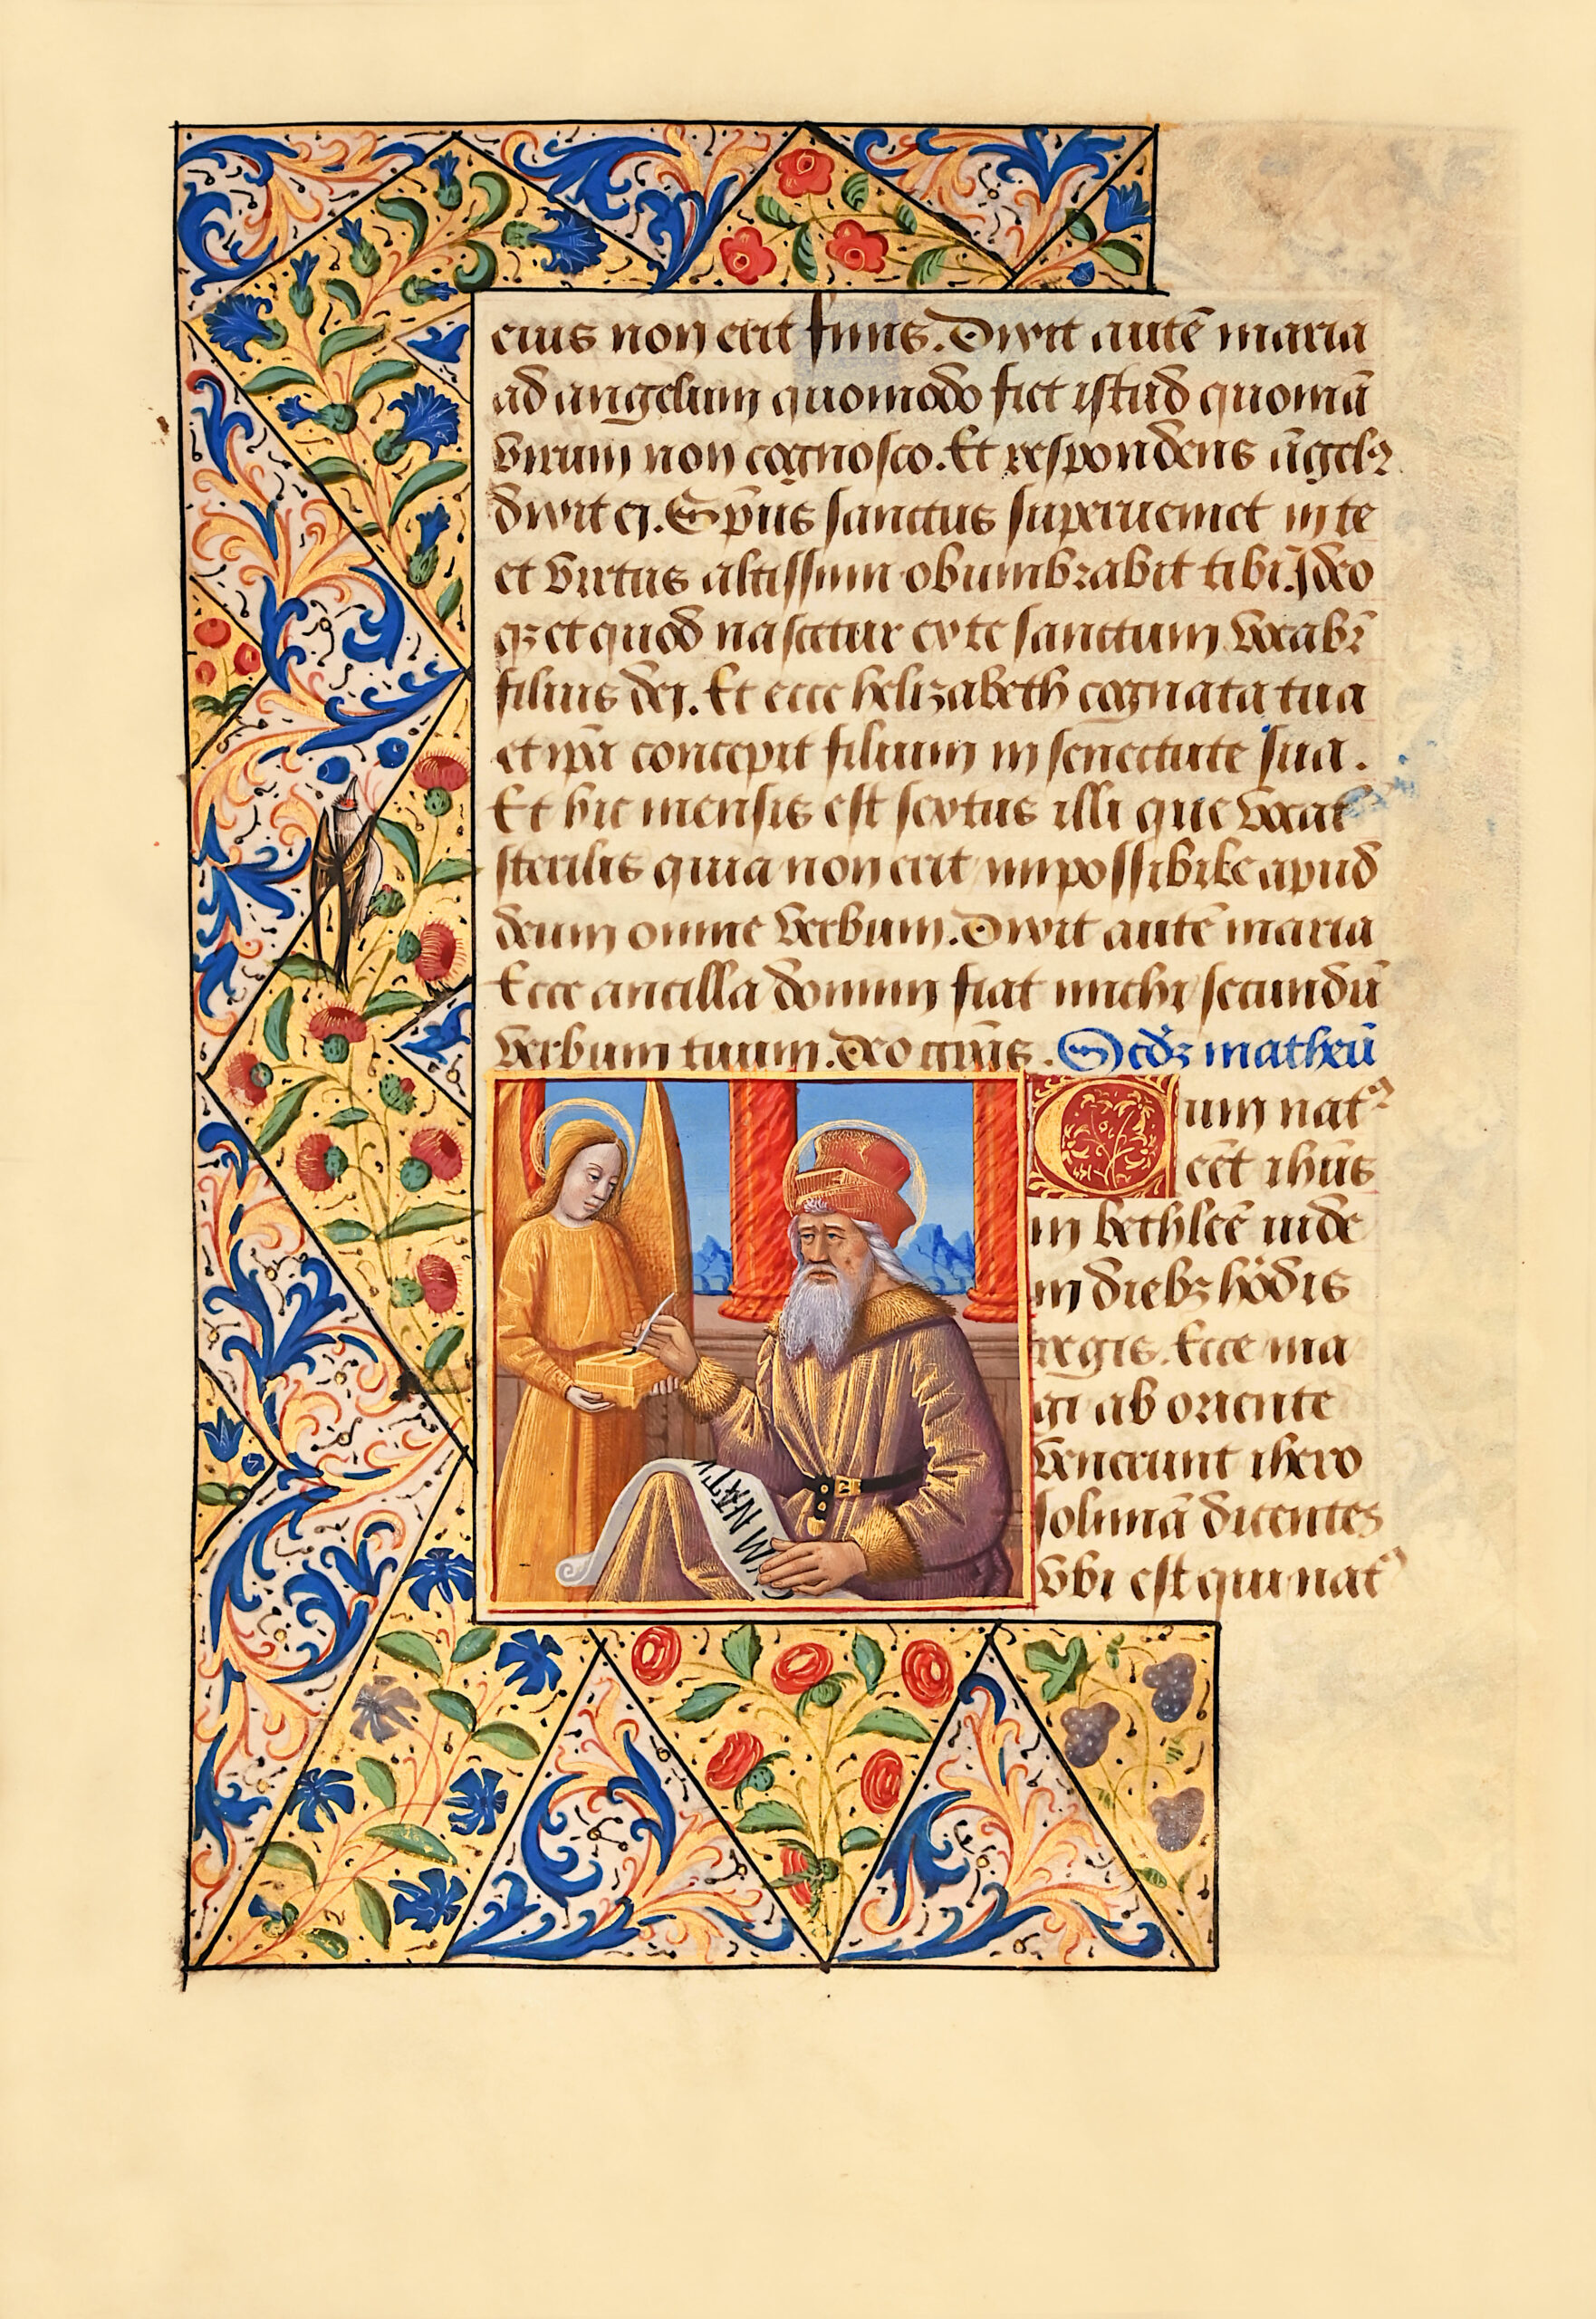 eius non erit finis. Dixit autē maria
ad angelum quomodo fiet istud quoniā
virum non cognosco. Et respondens āgelꝰ
dixit ei. Sp̄us sanctus superueniet in te
et virtus altissimi obumbrabit tibi. Ideo
qꝫ et quod nascetur ex te sanctum vocabr̄
filius dei. Et ecce helizabeth cognata tua
et ip̄a concepit filium in senectute sua.
Et hic mensis est sextus illi que vocat̄
sterilis quia non erit impossibile apud
deum omne verbum. Dixit autē maria
Ecce ancilla domini fiat michi secundū
verbum tuum. deo gr̄as. Scd̄ꝫ matheū
Cum natꝰ
eēt ihūs
in bethleē iude
in diebꝫ hōdis
regis. Ecce ma
gi ab oriente
venerunt ihero
solimā dicentes
Vbi est qui natꝰ
M NATV